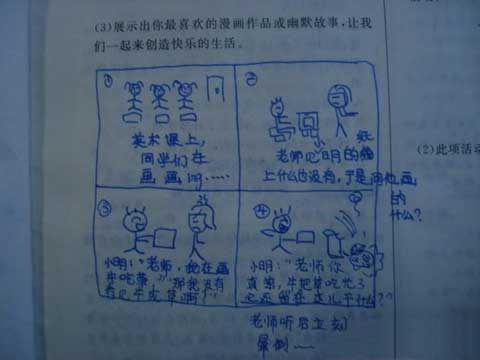 (3)展示出你最喜欢的漫画作品或幽默故事,让我
们一起来创造快乐的生活。
①
美术课上,
同学们在
画画呵……
②
老师见小明的纸
上什么也没有,于是问他画
的
什么?
③
小明:“老师,我在画
牛吃草。”“那我没有
看见牛或草啊?”
④
小明:“老师你
真笨,牛把草吃光了
它还留在这儿干什么?”
老师听后立刻
晕倒……
(2)此项活动